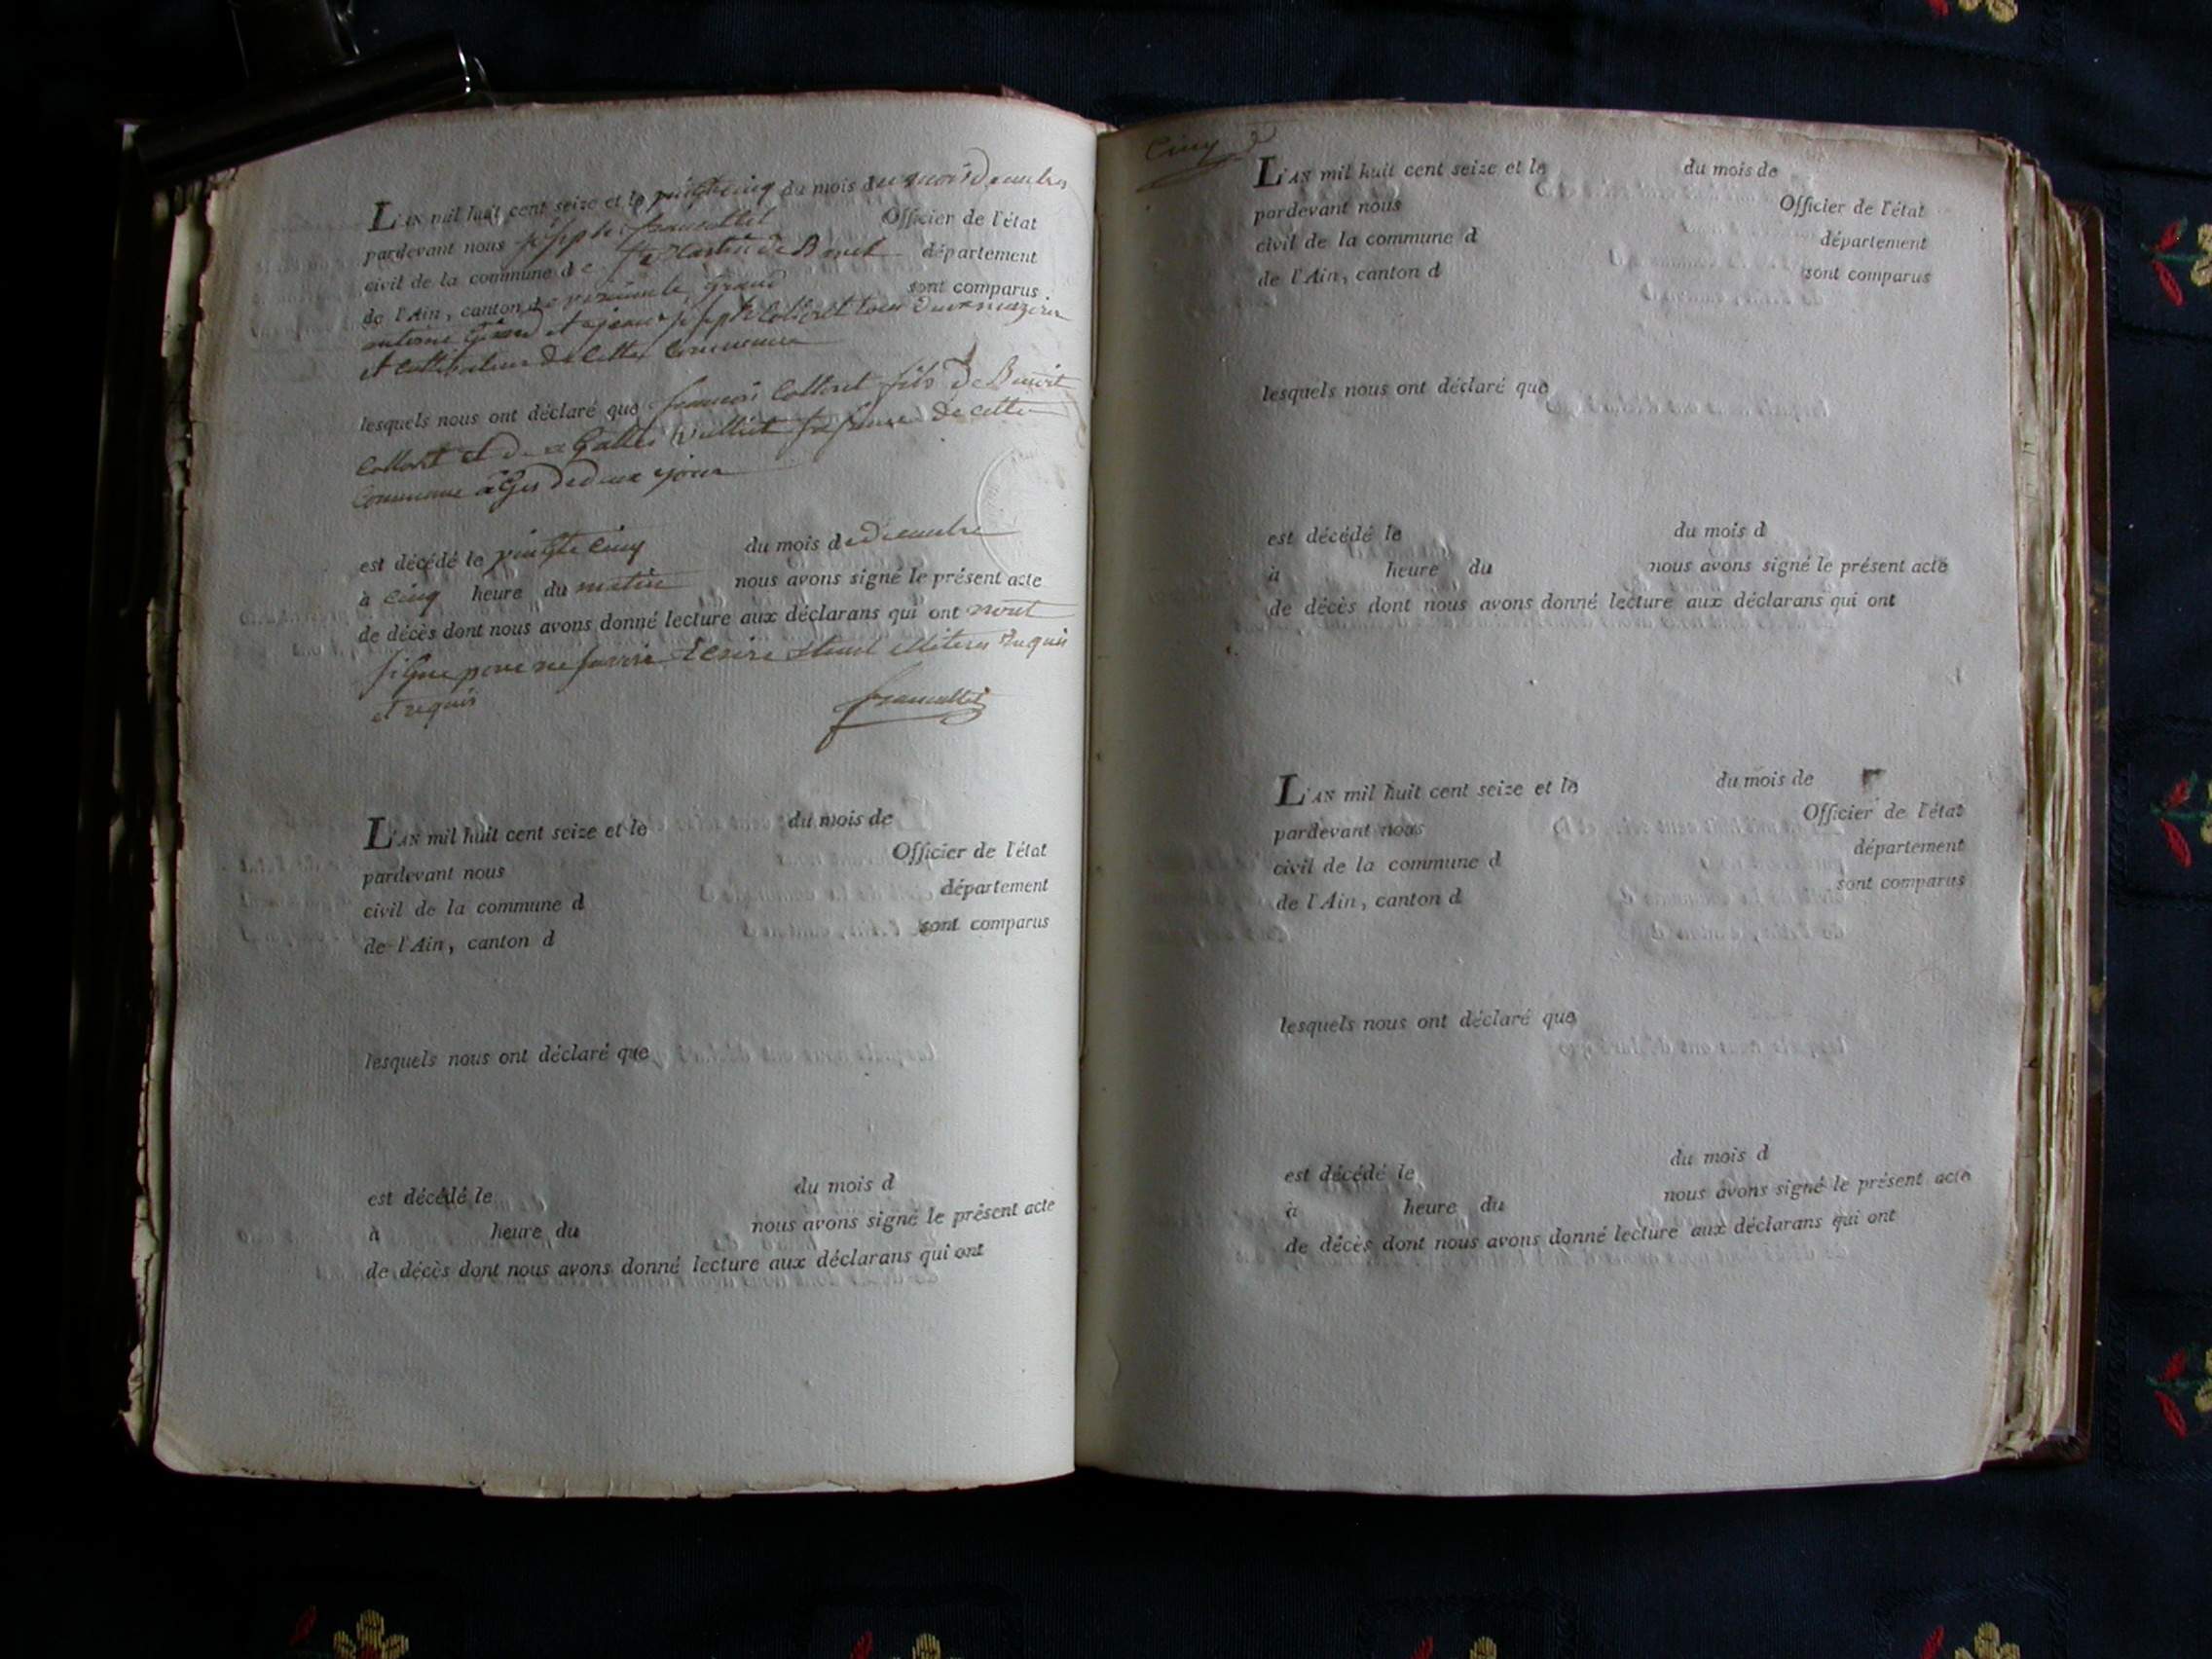 L'AN mil huit cent seize et le vingtcinq du mois du mois decembre
pardevant nous joseph Officier de l'état
civil de la commune de St Martin de Bavel département
de l'Ain, canton de virieu le grand sont comparus
antoine et jean joseph tous deux
et Cultivateur de Cette Commune
lesquels nous ont déclaré que francois fils De Benoit
et De sa femme De cette
Commune agés De deux jour
est décédé le vingte cinq du mois de Decembre
à cinq heure du matin nous avons signé le présent acte
de décès dont nous avons donné lecture aux déclarans qui ont nont
signe pour ne savoir Ecrire
et requis
L'AN mil huit cent seize et le du mois de
pardevant nous Officier de l'état
civil de la commune d département
de l'Ain, canton d sont comparus
lesquels nous ont déclaré que
est décédé le du mois d
à heure du nous avons signé le présent acte
de décès dont nous avons donné lecture aux déclarans qui ont
Cinq
L'AN mil huit cent seize et le du mois de
pardevant nous Officier de l'état
civil de la commune d département
de l'Ain, canton d sont comparus
lesquels nous ont déclaré que
est décédé le du mois d
à heure du nous avons signé le présent acte
de décès dont nous avons donné lecture aux déclarans qui ont
L'AN mil huit cent seize et le du mois de
pardevant nous Officier de l'état
civil de la commune d département
de l'Ain, canton d sont comparus
lesquels nous ont déclaré que
est décédé le du mois d
à heure du nous avons signé le présent acte
de décès dont nous avons donné lecture aux déclarans qui ont